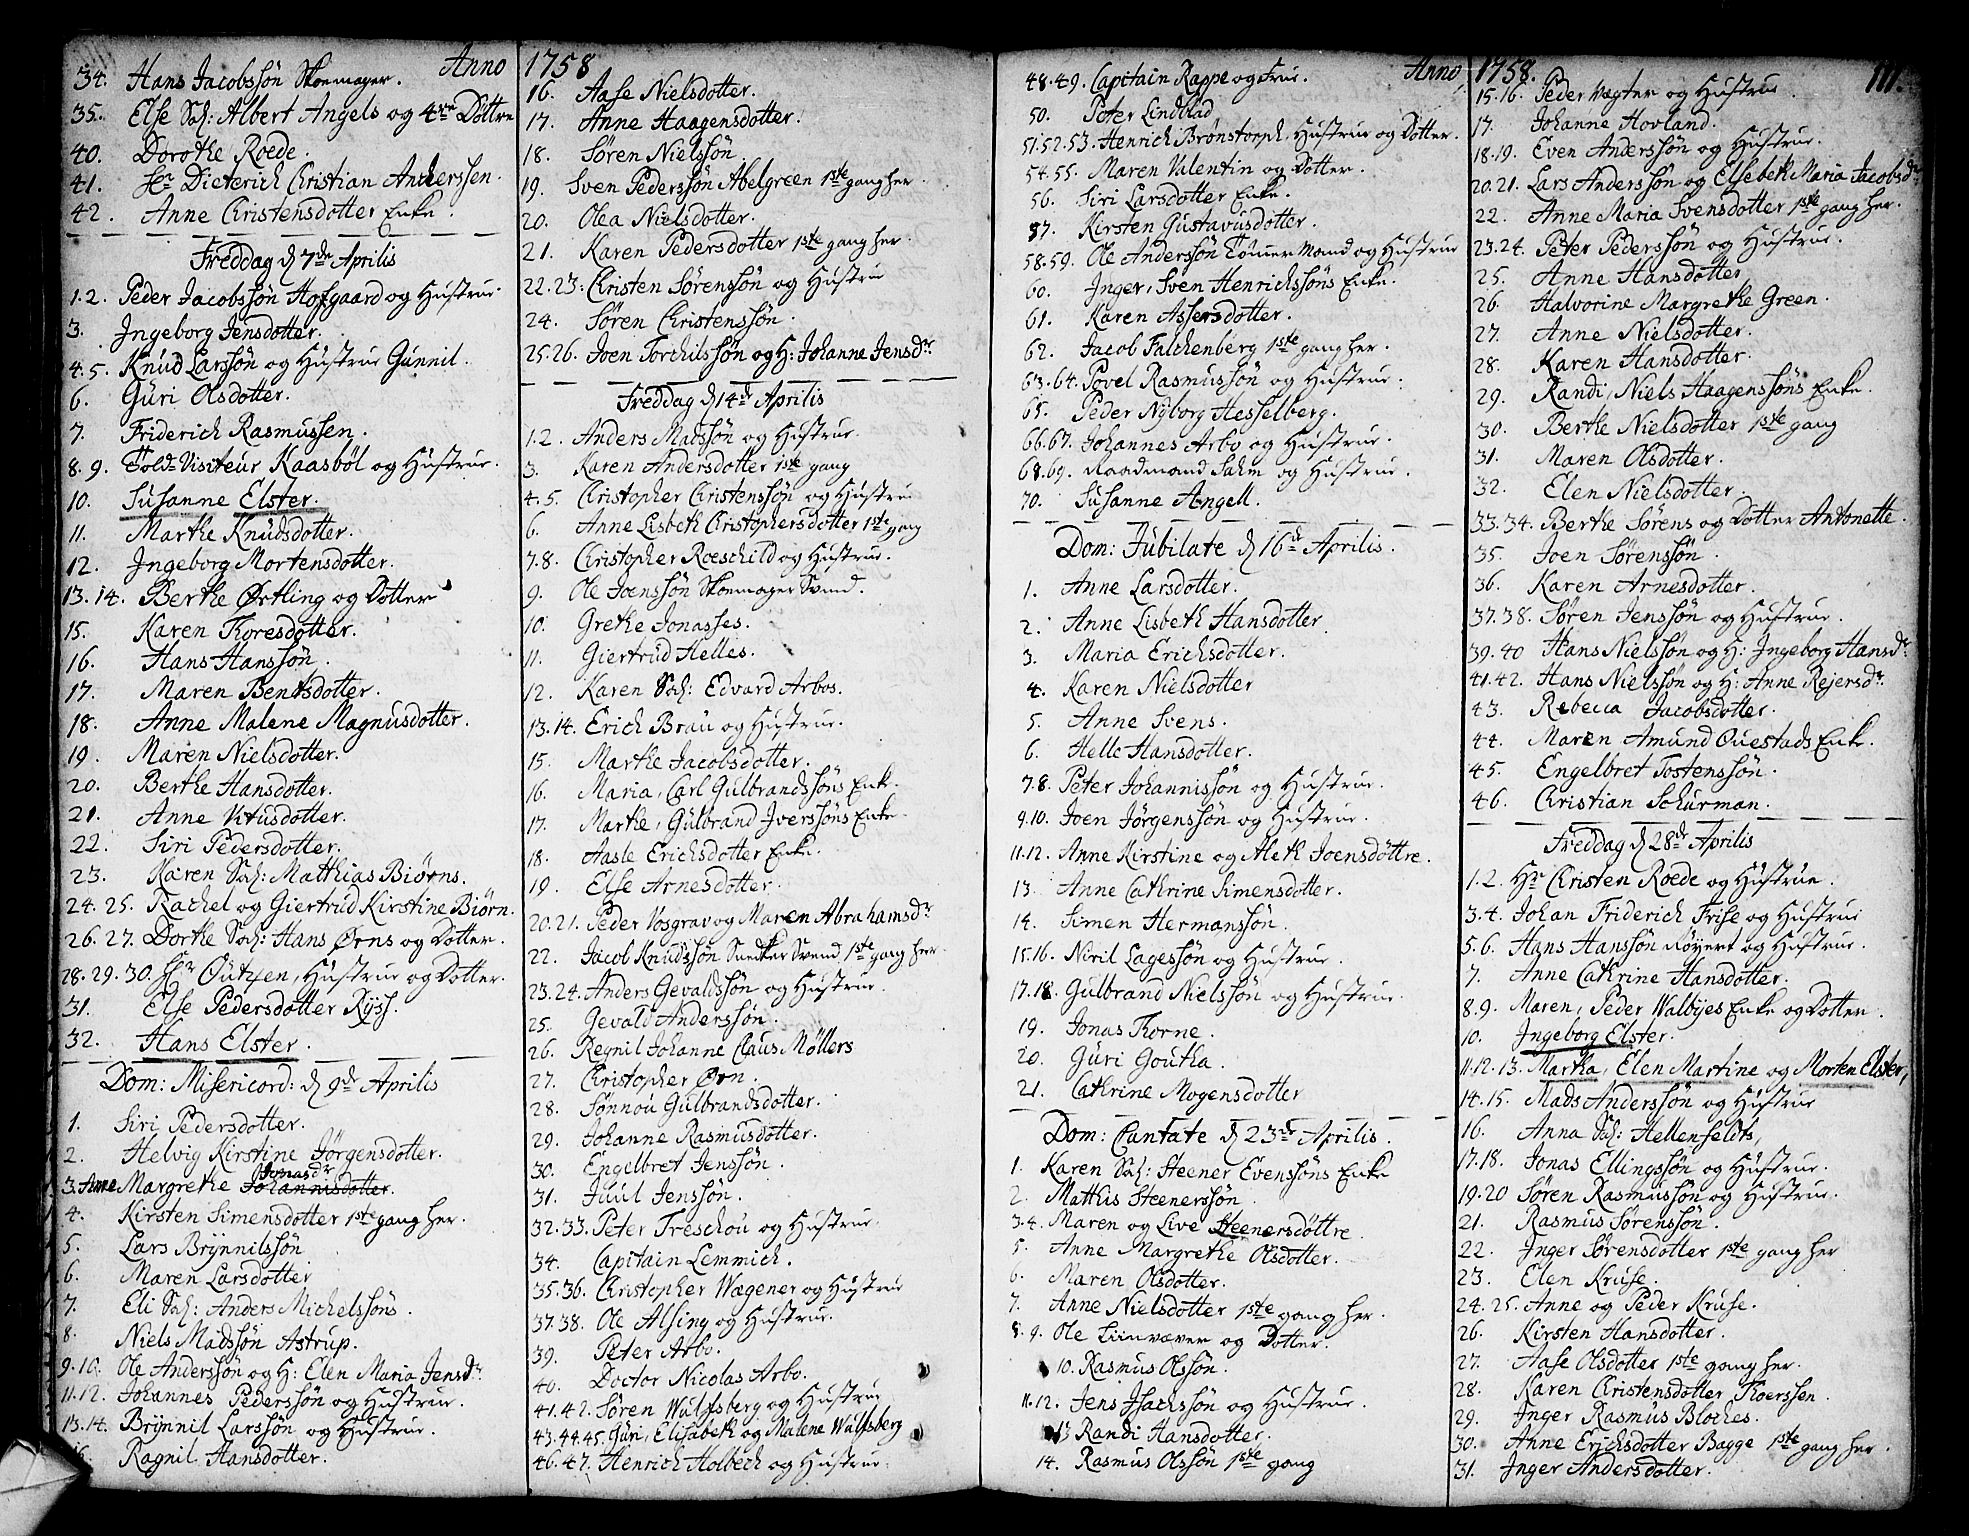 Anno 1758
34. Hans Jacobssön Skoemager.
35. Else Sal: Albert Angels og 4re Döttre
40. Dorothe Roede.
41. Sr Dieterich Christian Anderssen.
42. Anne Christensdotter Enke.
Freddag d 7de Aprilis
1.2. Peder Jacobssön Hofgaard og Hustrue.
3. Ingeborg Jensdotter.
4.5. Knud Larssön og Hustrue Gunnil.
6. Guri Olsdotter.
7. Friderich Rasmussen.
8.9. Told-Visiteur Kaasböl og Hustrue.
10. Susanne Elster.
11. Marthe Knudsdotter.
12. Ingeborg Mortensdotter.
13.14. Berthe Ørtling og Dotter
15. Karen Thoresdotter.
16. Hans Hanssön.
17. Maren Bentsdotter.
18. Anne Malene Magnusdotter.
19. Maren Nielsdotter.
20. Berthe Hansdotter.
21. Anne Vitusdotter.
22. Siri Pedersdotter.
23. Karen Sal: Matthias Biørns.
24.25. Rachel og Giertrud Kirstine Biørn.
26.27. Dorthe Sal: Hans Ørns og Dotter.
28.29.30. Hr Outzen, Hustrue og Dotter.
31. Else Pedersdotter Ryss.
32. Hans Elster.
Dom: Misericord: d 9de Aprilis
1. Siri Pedersdotter.
2. Helvig Kirstine Jörgensdotter.
3. Anne Margrethe Johannisdotter. Jonasdr
4. Kirsten Simensdotter 1ste gang her.
5. Lars Brynnilssön
6. Maren Larsdotter
7. Eli Sal: Anders Michelssöns.
8. Niels Madssön Astrup.
9.10. Ole Anderssön og H: Elen Maria Jensdr
11.12. Johannes Pederssön og Hustrue.
13.14. Brynnil Larssön og Hustrue.
Ragnil Hansdotter.
16. Aase Nielsdotter.
17. Anne Haagensdotter.
18. Sören Nielssön.
19. Sven Pederssön Abelgreen 1ste gang her.
20. Olea Nielsdotter.
21. Karen Pedersdotter 1ste gang her.
22.23. Christen Sörenssön og Hustrue
24. Sören Christenssön.
25.26. Joen Torchilssön og H: Johanne Jensdr
Freddag d 14de Aprilis
1.2. Anders Madssön og Hustrue.
3. Karen Andersdotter 1ste gang
4.5. Christopher Christenssön og Hustrue
6. Anne Lisbeth Christophersdotter 1ste gang
7.8. Christopher Roeschild og Hustrue.
9. Ole Joenssön Skoemager Svend.
10. Grethe Jonasses.
11. Giertrud Helles.
12. Karen Sal: Edvard Arbos.
13.14. Erich Brau og Hustrue.
15. Marthe Jacobsdotter.
16. Maria, Carl Gulbrandssöns Enke.
17. Marthe, Gulbrand Iverssöns Enke.
18. Aasle Erichsdotter Enke.
19. Else Arnesdotter.
20.21. Peder Vosgrav og Maren Abrahamsdr
22. Jacob Knudssön Snedker Svend 1ste gang her.
23.24. Anders Gevaldssön og Hustrue.
25. Gevald Anderssön.
26. Regnil Johanne Claus Möllers
27. Christopher Ørn.
28. Sönnou Gulbrandsdotter.
29. Johanne Rasmusdotter.
30. Engelbret Jenssön.
31. Juul Jenssön.
32.33. Peter Treschou og Hustrue.
34. Capitain Lemmich.
35.36. Christopher Wægener og Hustrue
37.38. Ole Alsing og Hustrue.
39. Peter Arbo.
40. Doctor Nicolas Arbo.
41.42. Sören Wulfsberg og Hustrue
43.44.45. Guri, Elisabeth og Malene Wulfsberg
46.47. Henrich Holbech og Hustrue.
Anno 1758. 111.
48.49. Capitain Rappe og Frue.
50. Peter Lindblad
51.52.53. Henrich Brønstorph, Hustrue og Dotter.
54.55. Maren Valentin og Dotter.
56. Siri Larsdotter Enke.
57. Kirsten Gustavusdotter.
58.59. Ole Anderssön Tömmer Mand og Hustrue
60. Inger, Sven Henrichssöns Enke.
61. Karen Assersdotter.
62. Jacob Falchenberg 1ste gang her.
63.64. Povel Rasmussön og Hustrue.
65. Peder Nyborg Hesselberg.
66.67. Johannes Arbo og Hustrue.
68.69. Raadmand Sahm og Hustrue.
70. Susanne Angell.
Dom: Jubilate d 16de Aprilis.
1. Anne Larsdotter.
2. Anne Lisbeth Hansdotter
3. Maria Erichsdotter.
4. Karen Nielsdotter
5. Anne Svens.
6. Helle Hansdotter.
7.8. Peter Johannissön og Hustrue.
9.10. Joen Jörgenssön og Hustrue.
11.12. Anne Kirstine og Aleth Joensdöttre.
13. Anne Cathrine Simensdotter.
14. Simen Hermanssön.
15.16. Niril Lagessön og Hustrue.
17.18. Gulbrand Nielssön og Hustrue.
19. Jonas Thorne.
20. Guri Goutha.
21. Cathrine Mogensdotter
Dom: Cantate d 23de Aprilis.
1. Karen Sal: Steener Evenssöns Enke
2. Matthis Steenerssön.
3.4. Maren og Live Steenersdöttre.
5. Anne Margrethe Olsdotter.
6. Maren Olsdotter.
7. Anne Nielsdotter 1ste gang her.
8.9. Ole Liinvæver og Dotter.
10. Rasmus Olssön.
11.12. Jens Isachssön og Hustrue.
13 Randi Hansdotter.
14. Rasmus Olssön 1ste gang
15.16. Peder Vægter og Hustrue.
17. Johanne Hovland.
18.19. Even Anderssön og Hustrue.
20.21. Lars Anderssön og Elsebeth Maria Jacobsdr
22. Anne Maria Svensdotter 1ste gang her.
23.24. Peter Pederssön og Hustrue.
25. Anne Hansdotter
26 Halvorine Margrethe Green.
27. Anne Nielsdotter.
28. Karen Hansdotter.
29. Randi, Niels Haagenssöns Enke.
30. Berthe Nielsdotter 1ste gang
31. Maren Olsdotter.
32. Elen Nielsdotter.
33.34. Berthe Sörens og Dotter Antonette.
35. Joen Sörenssön.
36. Karen Arnesdotter.
37.38. Sören Jenssön og Hustrue.
39.40 Hans Nielssön og H: Ingeborg Hansdr
41.42. Hans Nielssön og H: Anne Rejersdr
43. Rebecca Jacobsdotter.
44. Maren Amund Ouestads Enke.
45. Engelbret Tostenssön.
46. Christian Schurman.
Freddag d 28de Aprilis
1.2. Hr Christen Roede og Hustrue.
3.4. Johan Friderich Frise og Hustrue
5.6. Hans Hanssön Röyert og Hustrue.
7. Anne Cathrine Hansdotter.
8.9. Maren, Peder Walbyes Enke og Dotter.
10. Ingeborg Elster.
11.12.13. Martha, Elen Martine og Morten Elster,
14.15. Mads Anderssön og Hustrue
16. Anna Sal: Hellenfeldts,
17.18. Jonas Ellingssön og Hustrue.
19.20 Sören Rasmussön og Hustrue.
21. Rasmus Sörenssön.
22. Inger Sörensdotter 1ste gang her
23. Elen Kruse.
24.25. Anne og Peder Kruse.
26. Kirsten Hansdotter.
27. Aase Olsdotter 1ste gang her.
28. Karen Christensdotter Thoerssen.
29. Inger Rasmus Bloches.
30. Anne Erichsdotter Bagge 1ste gang her.
31. Inger Andersdotter.